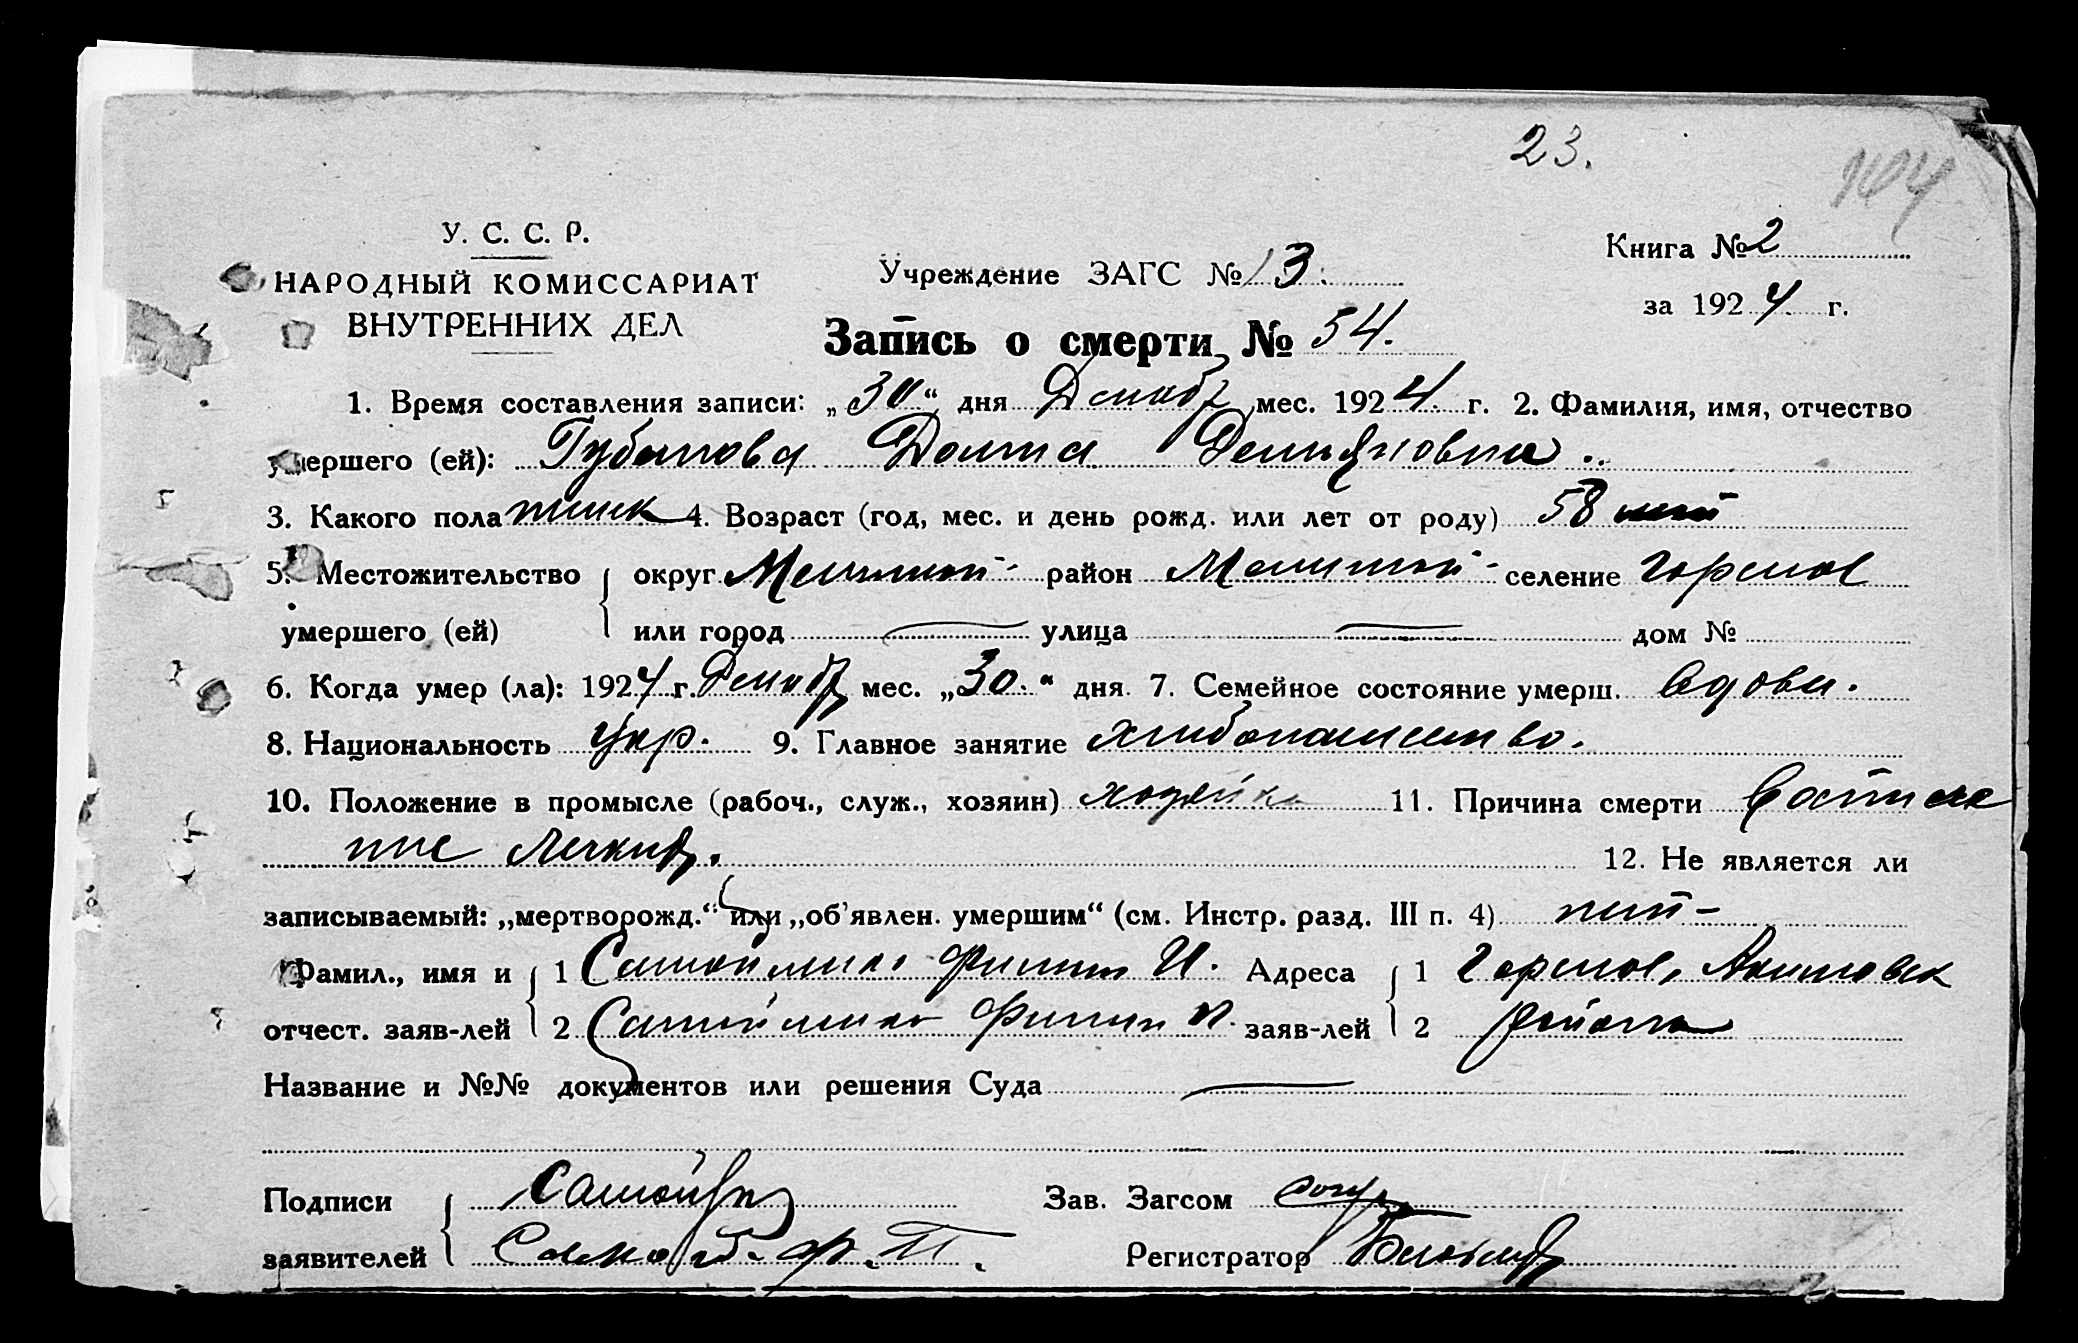 23.
104
У. С. С. Р.
НАРОДНЫЙ КОМИССАРИАТ
ВНУТРЕННИХ ДЕЛ
Учреждение ЗАГС № 13.
Книга № 2
за 1924 г.
Запись о смерти № 54.
1. Время составления записи: „30“ дня Декабр мес. 1924 г. 2. Фамилия, имя, отчество
умершего (ей): Губанова Домна Демьяновна.
3. Какого пола женск 4. Возраст (год, мес. и день рожд. или лет от роду) 58 лет
5. Местожительство округ Мелит район Мелит селение Горелое
умершего (ей) или город — улица — дом №
6. Когда умер (ла): 1924 г. Декабр мес. „30.“ дня. 7. Семейное состояние умерш. вдова.
8. Национальность Укр. 9. Главное занятие хлебопашество.
10. Положение в промысле (рабоч., служ., хозяин) хозяйка 11. Причина смерти Воспале
ние Легких.
12. Не является ли
записываемый: „мертворожд.“ или „об'явлен. умершим“ (см. Инстр. разд. III п. 4) нет –
Фамил., имя и 1 Самойленко Филип И. Адреса 1 Горелое, Акимовск
отчест. заяв-лей 2 Самойленко Филип заяв-лей 2 района
Название и №№ документов или решения Суда —
Подписи Зав. Загсом
заявителей Регистратор